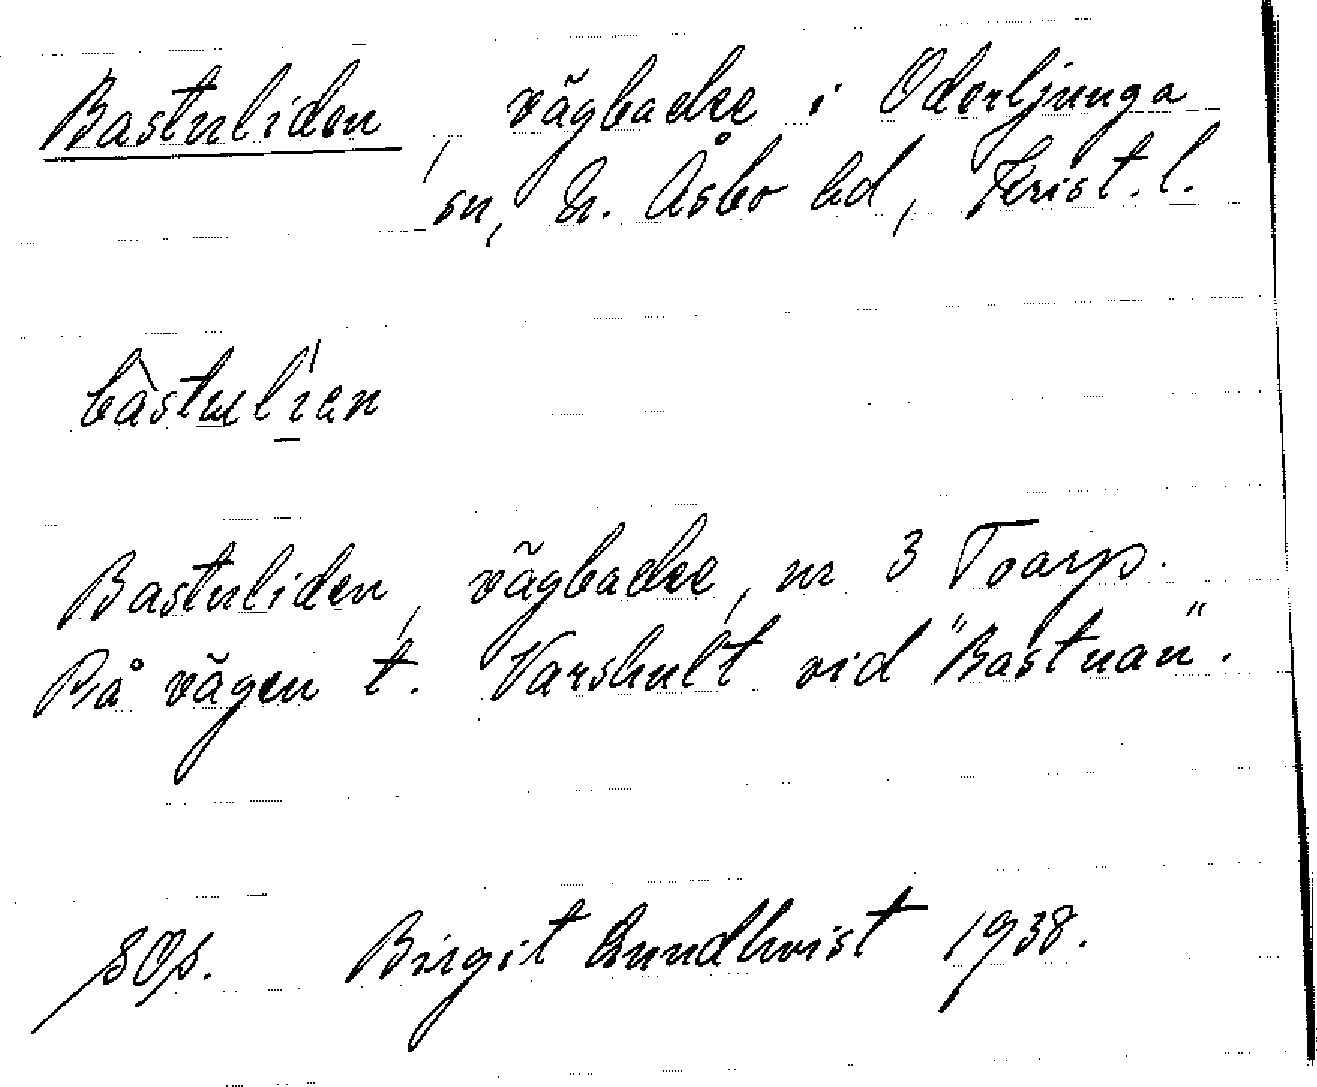 Bastuliden, vägbacke i Oderljunga
sn, N. Åsbo hd, Krist. l.
bàstulían
Bastuliden, vägbacke, nr 3 Toarp.
På vägen t. Varshult vid "Bastuan".
SOp. Birgit Lundkvist 1938.